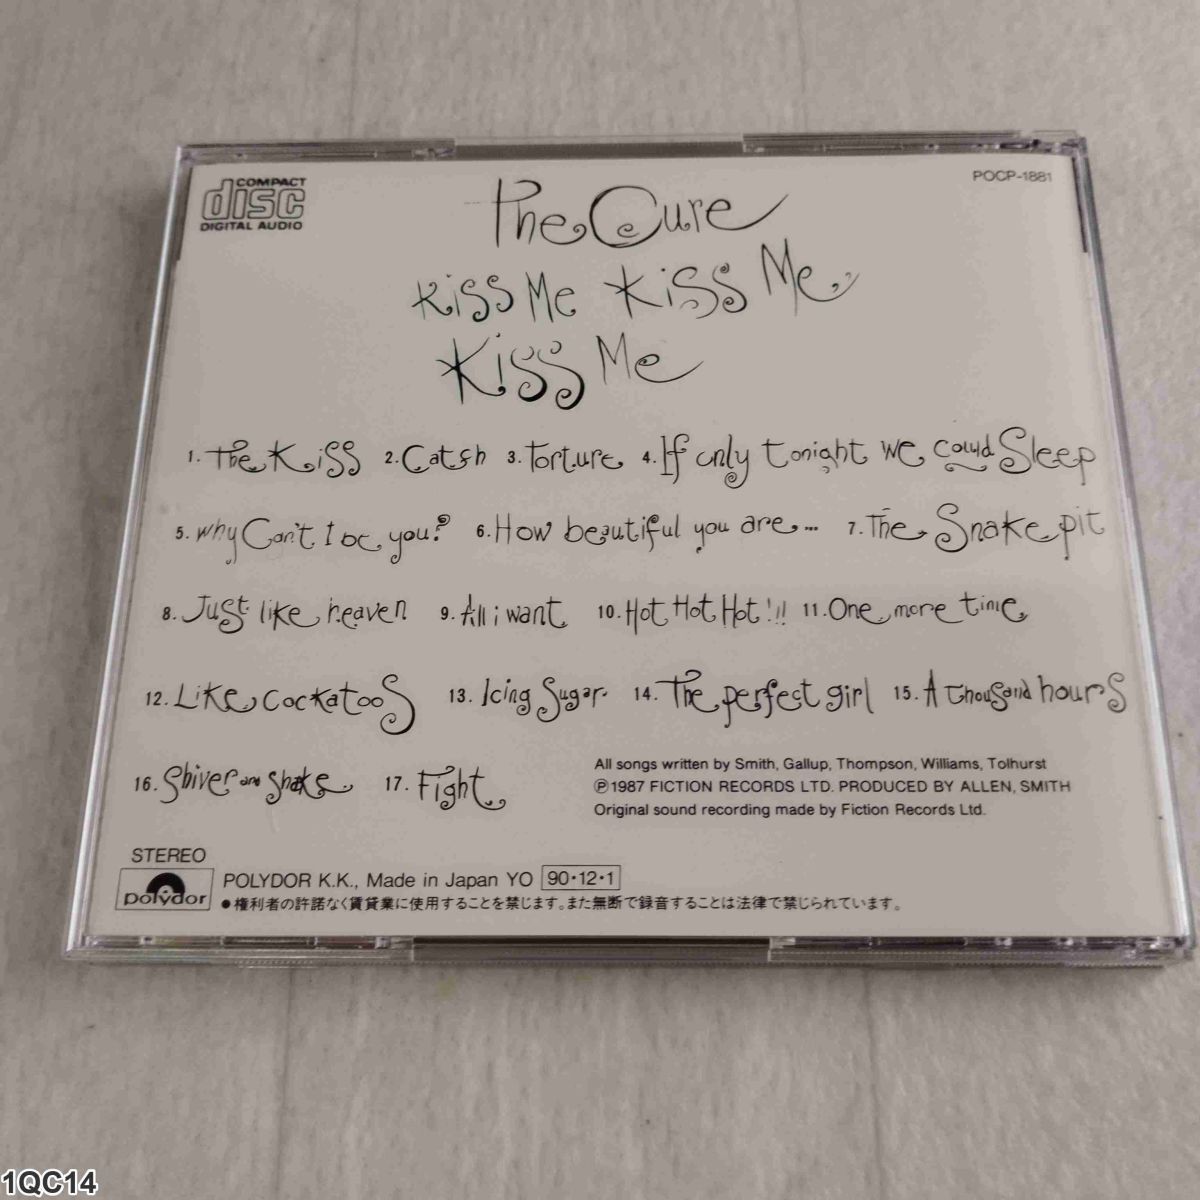 COMPACT
disc
DIGITAL AUDIO
POCP-1881
The Cure
Kiss Me Kiss Me
Kiss Me
1. The Kiss 2. Catch 3. Torture 4. If only tonight we could Sleep
5. why Can't I be you? 6. How beautiful you are... 7. The Snake pit
8. Just like heaven 9. All i want 10. Hot Hot Hot!!! 11. One more time
12. Like cockatoos 13. Icing Sugar 14. The perfect girl 15. A thousand hours
16. Shiver and Shake 17. Fight
All songs written by Smith, Gallup, Thompson, Williams, Tolhurst
℗1987 FICTION RECORDS LTD. PRODUCED BY ALLEN, SMITH
Original sound recording made by Fiction Records Ltd.
STEREO
polydor
POLYDOR K.K., Made in Japan YO 90・12・1
●権利者の許諾なく賃貸業に使用することを禁じます。また無断で録音することは法律で禁じられています。
1QC14